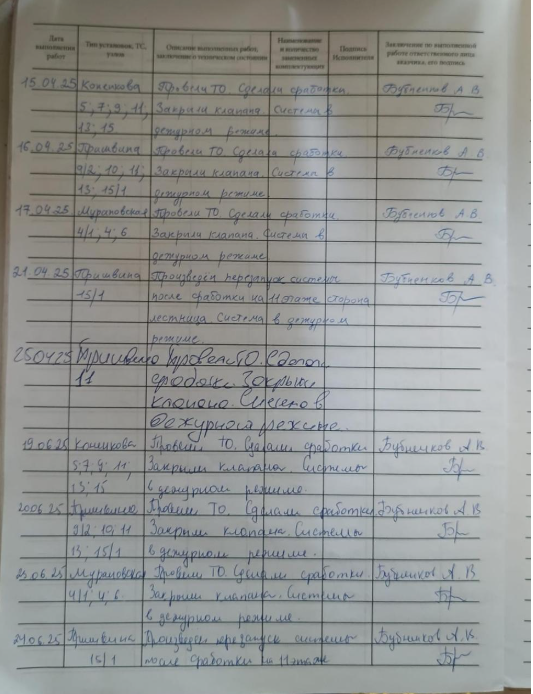 Дата выполнения работ
Тип установок, ТС, узлов
Описание выполненных работ, заключение о техническом состоянии
Наименование и количество замененных комплектующих
Подпись Исполнителя
Заключение по выполненной работе ответственного лица заказчика, его подпись
15.04.25 Коненкова Провели ТО Сделали сработки. Бубненков А В
5; 7; 9; 11; Закрыли клапана. Система в
13; 15 дежурном режиме
16.04.25 Пришвина Провели ТО Сделали сработки. Бубненков А В
9/2; 10; 11; Закрыли клапана. Система в
13; 15/1 дежурном режиме
17.04.25 Мурановская Провели ТО. Сделали сработки. Бубненков А В.
4/1, 4; 6 Закрыли клапана. Система в
дежурном режиме
21.04.25 Пришвина Произведен перезапуск системы Бубненков А В.
15/1 после сработки на 11 этаже сторона
лестница. Система в дежурном
режиме
25.04.25 Пришвина Провели ТО. Сделали
11 сработки. Закрыли
клапана. Система в
дежурном режиме.
19.06.25 Коненкова Провели ТО. Сделали сработки Бубненков А В
5; 7, 9; 11; Закрыли клапана. Системы
13; 15 в дежурном режиме.
20.06.25 Пришвина Провели ТО. Сделали сработки Бубненков А В
9/2; 10; 11 Закрыли клапана. Системы
13; 15/1 в дежурном режиме.
23.06.25 Мурановская Провели ТО. Сделали сработки. Бубненков А В
4/1; 4; 6. Закрыли клапана. Системы
в дежурном режиме.
24.06.25 Пришвина Произведен перезапуск системы Бубненков А.В.
15/1 после сработки на 11 этаже